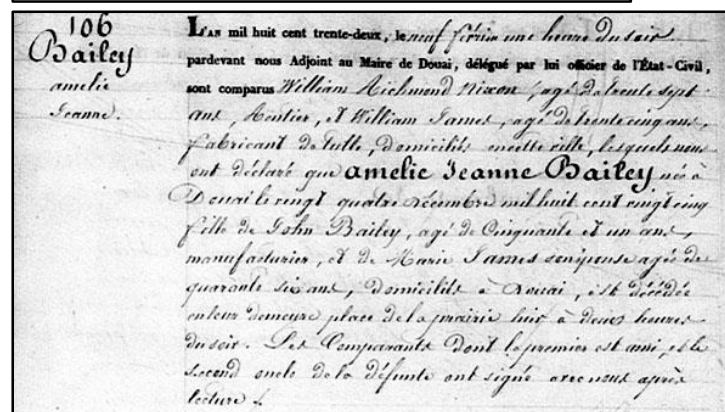 106
Bailey
amelie
Jeanne.
L'AN mil huit cent trente-deux, le neuf février une heure du soir
pardevant nous Adjoint au Maire de Douai, délégué par lui officier de l'État-Civil,
sont comparus William Richmond Nixon, agé de trente sept
ans, Rentier, et William James, agé de trente cinq ans,
fabricant de tulle, domiciliés en cette ville, lesquels nous
ont déclaré que amelie Jeanne Bailey née à
Douai le vingt quatre décembre mil huit cent vingt cinq
fille de John Bailey, agé de Cinquante et un ans,
manufacturier, et de Marie James son épouse agée de
quarante six ans, domiciliés à Douai, est décédée
en leur demeure place de la prairie hier à deux heures
du soir. Les Comparants dont le premier est ami, et le
second oncle de la défunte ont signé avec nous après
lecture